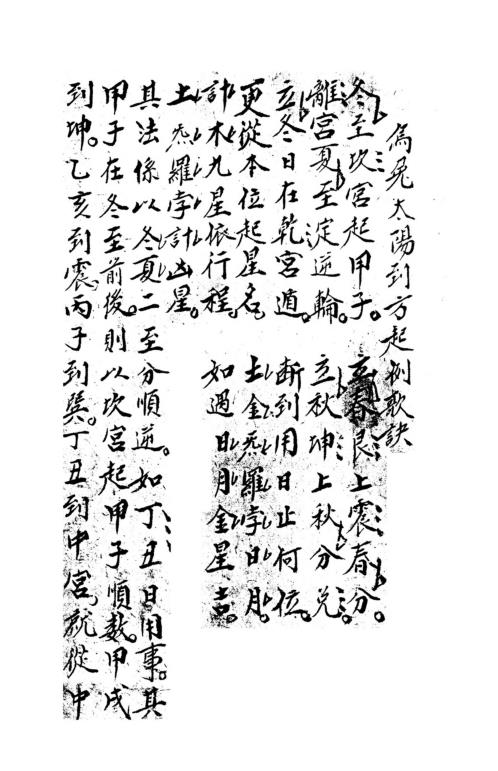 烏兔太陽到方起例歌訣
冬至坎宮起甲子。立春艮上震春分。
離宮夏至淀逆輪。立秋坤上秋分兌。
立冬日在乾宮遁。斷到用日止何位。
更從本位起星名。土金炁羅孛日月。
計木九星依行程。如遇日月金星吉。
土炁羅孛計凶星。
其法係以冬夏二至分順逆。如丁丑日用事。其
甲子在冬至前後。則以坎宮起甲子順數。甲戌
到坤。乙亥到震。丙子到巽。丁丑到中宮。就從中